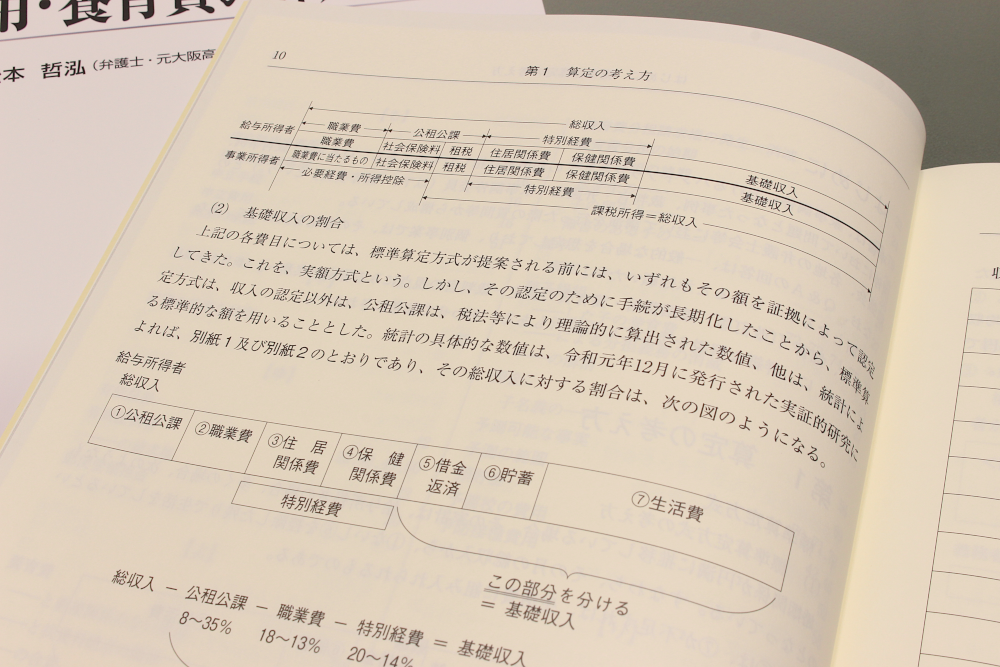 用・養育費の
本 哲泓（弁護士・元大阪高
10
第1 算定の考え方
総収入
給与所得者 職業費 公租公課 特別経費
職業費 社会保険料 租税 住居関係費 保健関係費 基礎収入
事業所得者 職業費に当たるもの 社会保険料 租税 住居関係費 保健関係費 基礎収入
必要経費・所得控除 特別経費
課税所得＝総収入
(2) 基礎収入の割合
上記の各費目については、標準算定方式が提案される前には、いずれもその額を証拠によって認定
してきた。これを、実額方式という。しかし、その認定のために手続が長期化したことから、標準算
定方式は、収入の認定以外は、公租公課は、税法等により理論的に算出された数値、他は、統計によ
る標準的な額を用いることとした。統計の具体的な数値は、令和元年12月に発行された実証的研究に
よれば、別紙1及び別紙2のとおりであり、その総収入に対する割合は、次の図のようになる。
給与所得者
総収入
①公租公課 ②職業費 ③住居関係費 ④保健関係費 ⑤借金返済 ⑥貯蓄 ⑦生活費
特別経費
この部分を分ける
＝ 基礎収入
総収入 − 公租公課 − 職業費 − 特別経費 ＝ 基礎収入
8〜35% 18〜13% 20〜14%